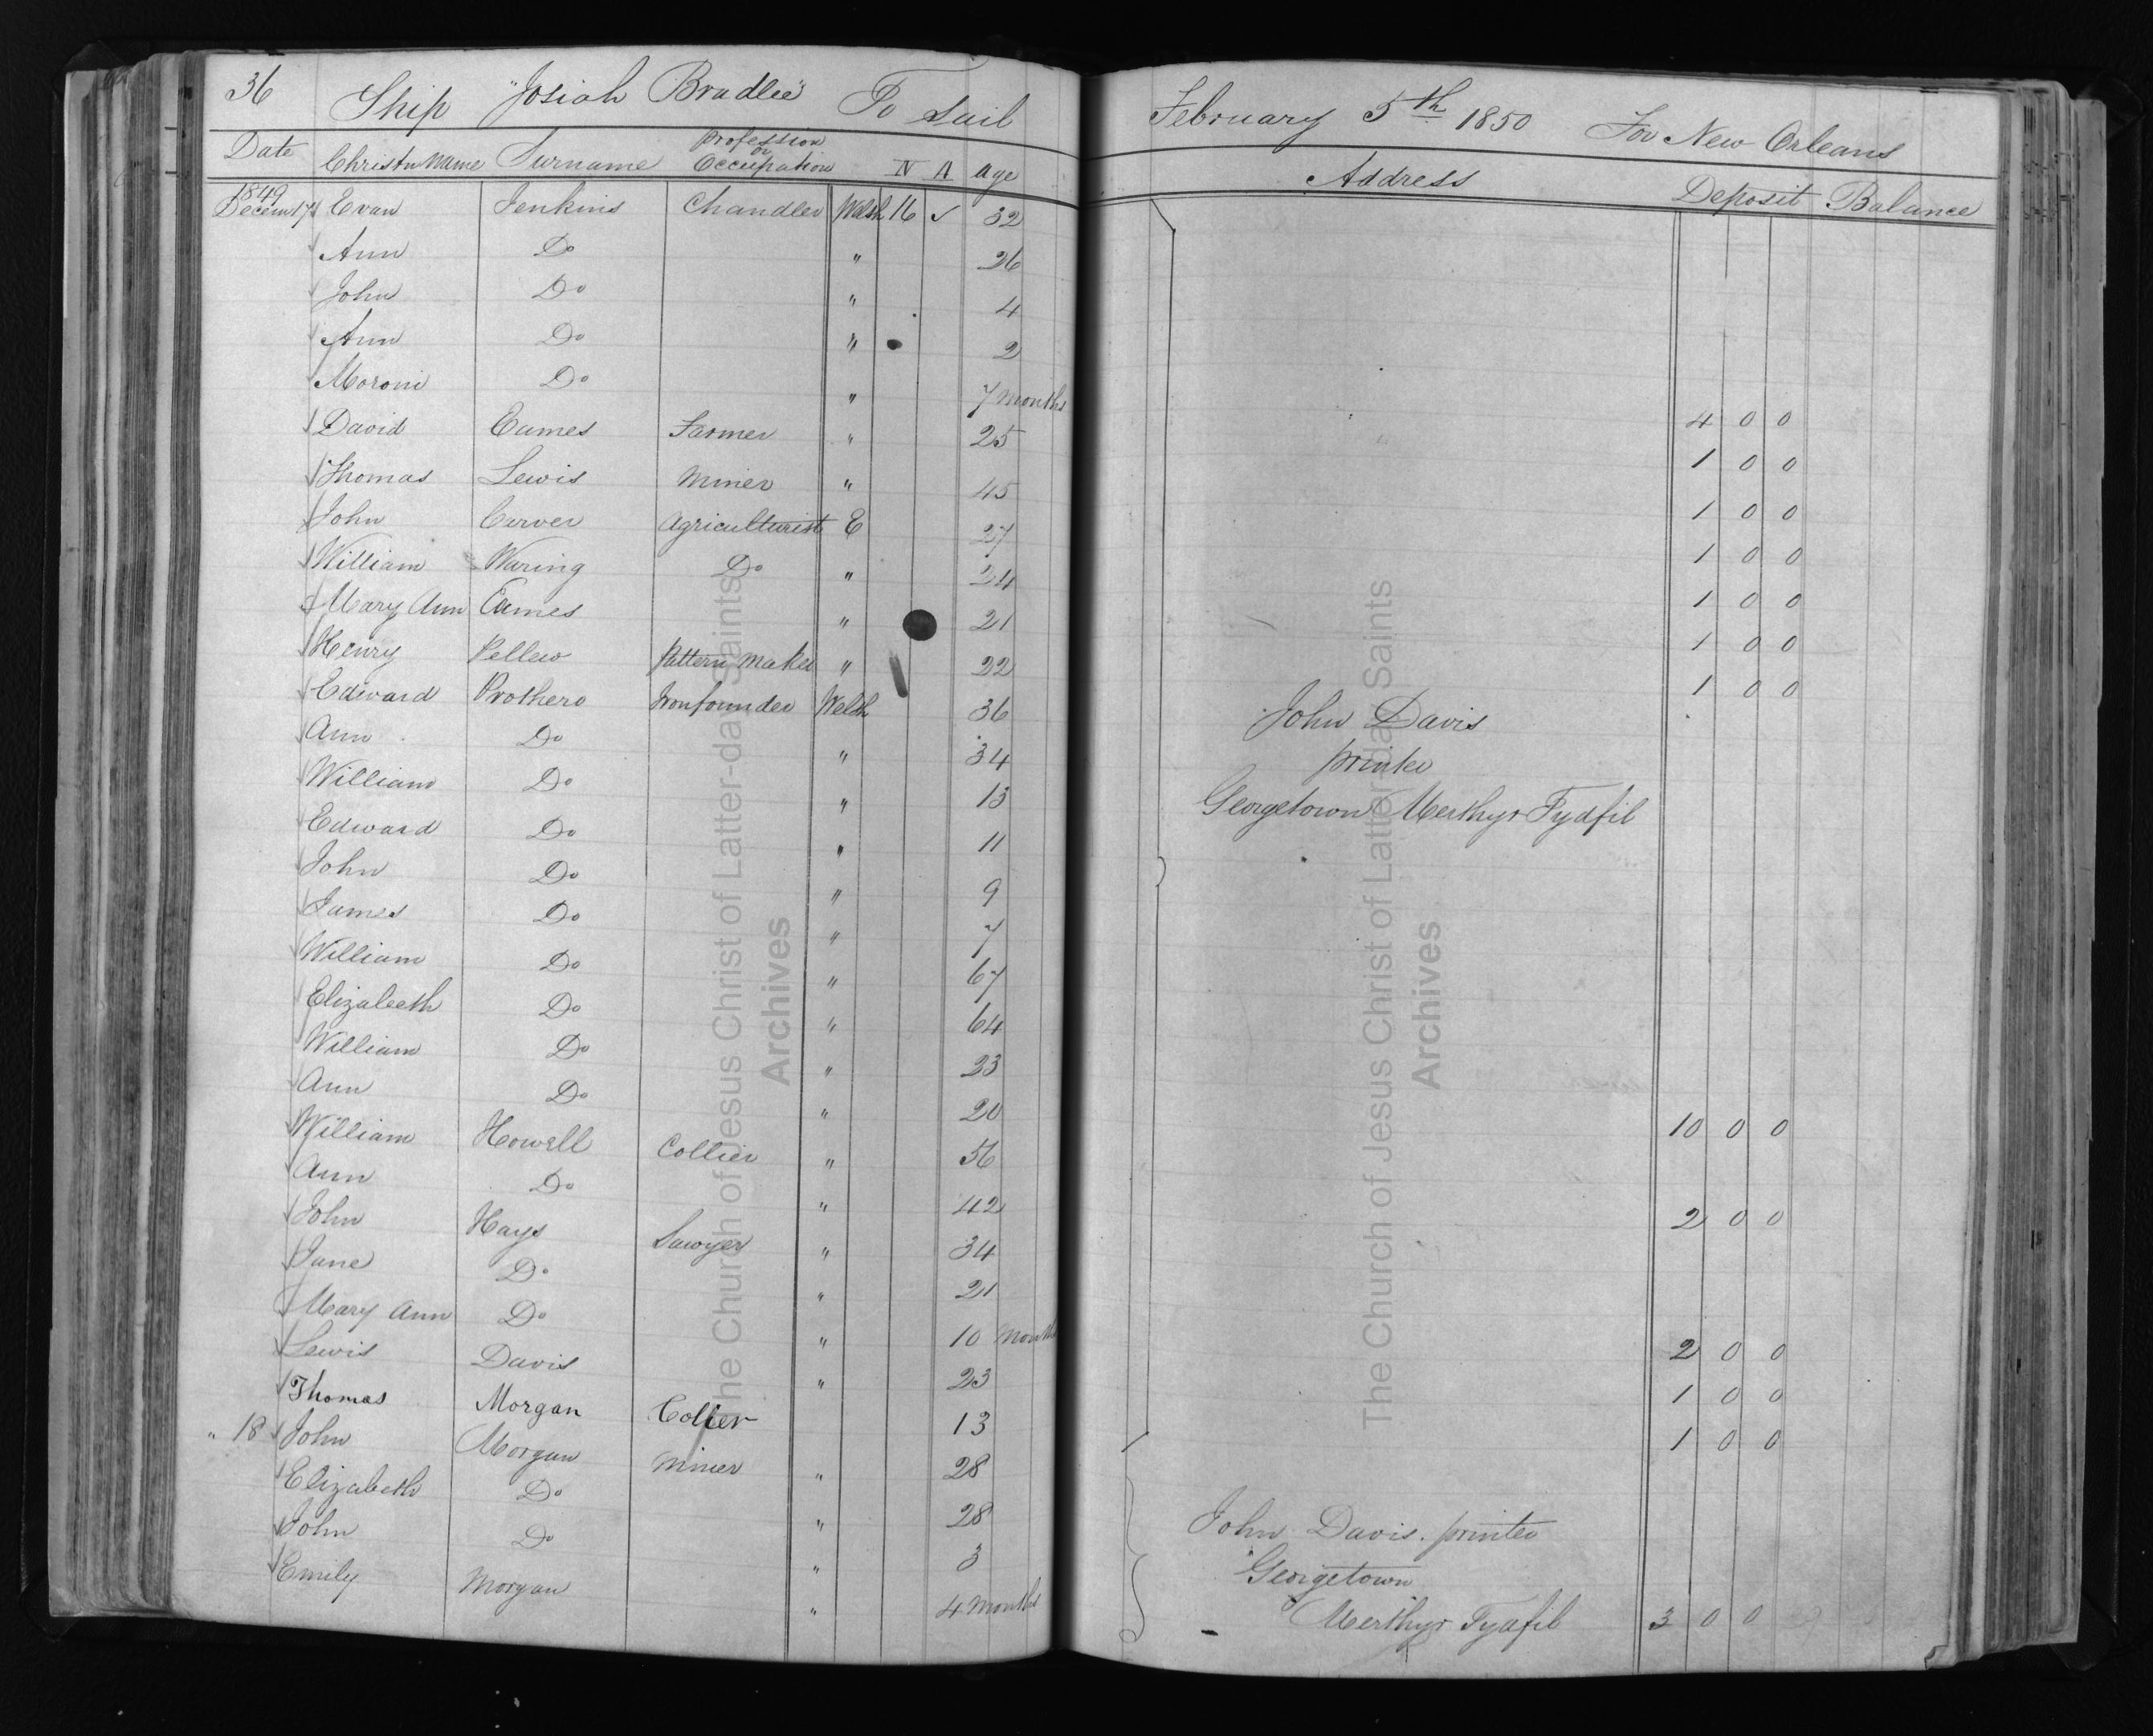 36 Ship "Josiah Bradlee" To Sail February 5th 1850 For New Orleans
Date Christn Name Surname Profession or Occupation N A age Address Deposit Balance
1849 Decem 17 Evan Jenkins Chandler Welsh 16 ✓ 32
Ann Do " 26
John Do " 4
Ann Do " 2
Moroni Do " 7 months 4 0 0
David Eames Farmer " 25 1 0 0
Thomas Lewis Miner " 45 1 0 0
John Carver Agriculturist E 27 1 0 0
William Waring Do " 24 1 0 0
Mary Ann Eames " 21 1 0 0
Henry Pellew Pattern Maker " 22 1 0 0
Edward Prothero Ironfounder Welsh 36 John Davis
Ann Do " 34 printer
William Do " 13 Georgetown Merthyr Tydfil
Edward Do " 11
John Do " 9
James Do " 7
William Do " 67
Elizabeth Do " 64
William Do " 23
Ann Do " 20 10 0 0
William Howell Collier " 56
Ann Do " 42 2 0 0
John Hays Sawyer " 34
Jane Do " 21
Mary Ann Do " 10 Months 2 0 0
Lewis Davis " 23 1 0 0
Thomas Morgan Collier 13 1 0 0
" 18 John Morgan Miner " 28
Elizabeth Do " 28 John Davis. printer
John Do " 3 Georgetown
Emily Morgan " 4 Months Merthyr Tydfil 3 0 0
The Church of Jesus Christ of Latter-day Saints
Archives
The Church of Jesus Christ of Latter-day Saints
Archives